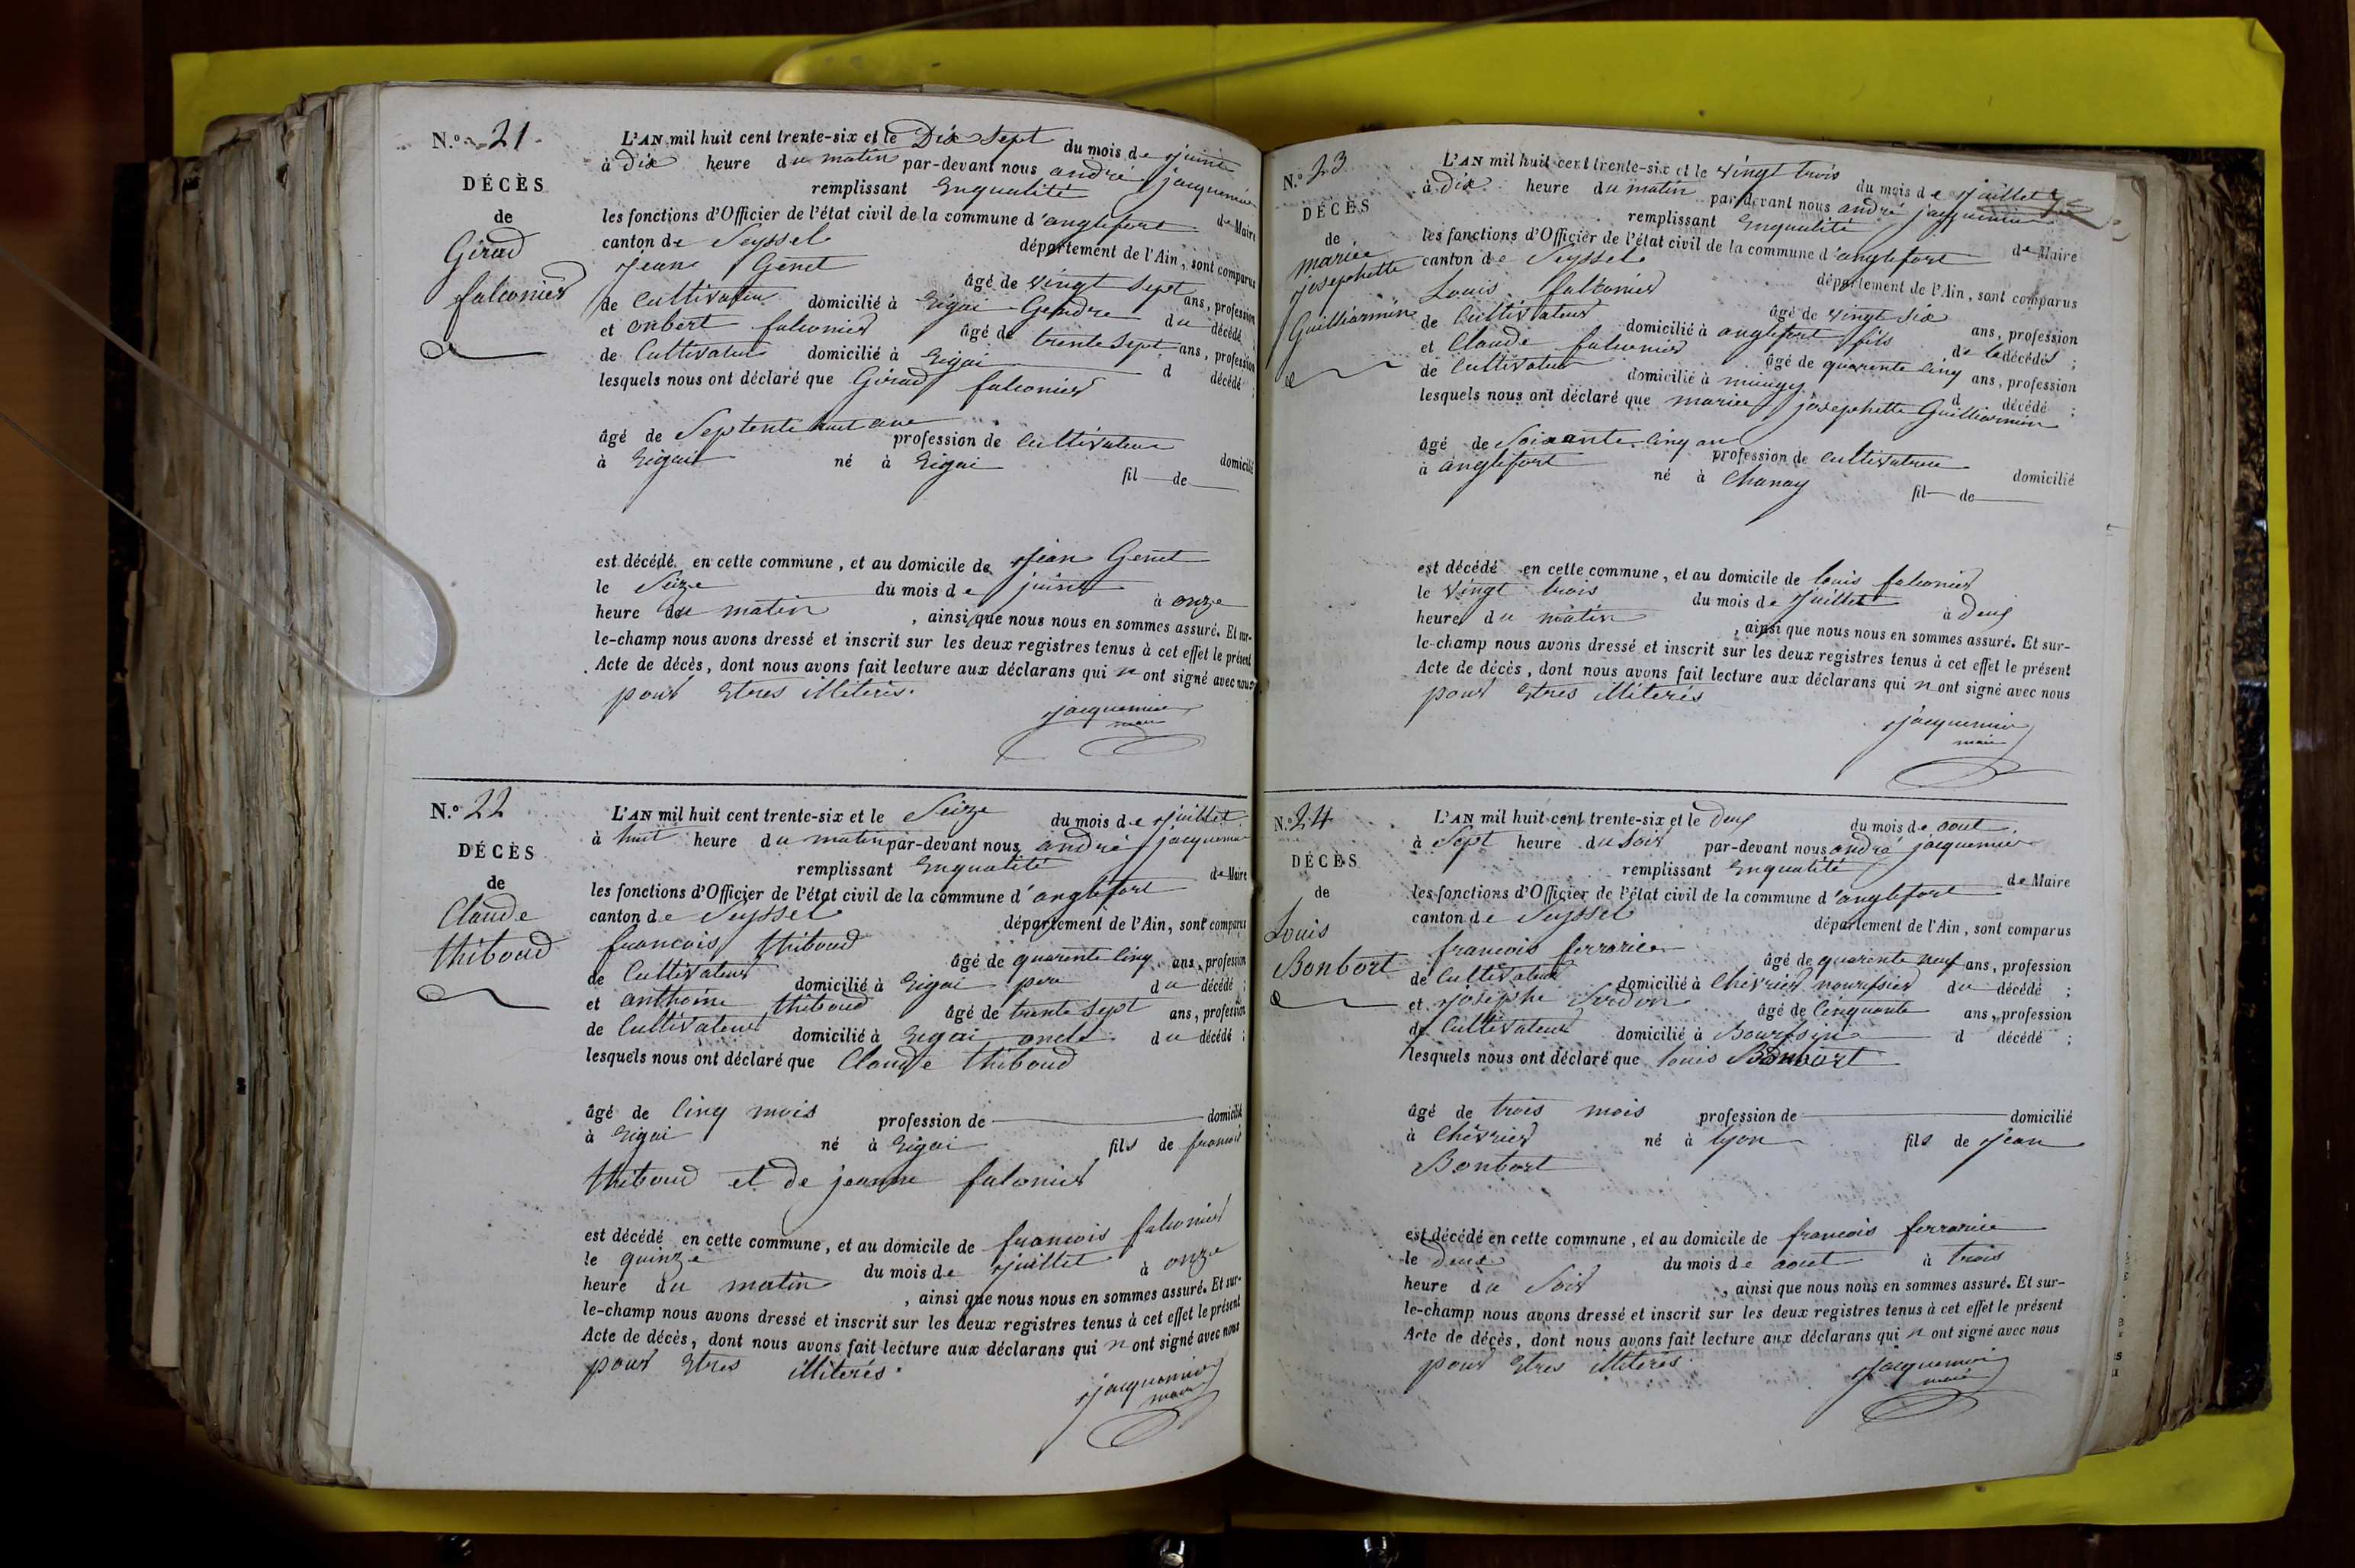 N.º 21
DÉCÈS
de
Girod
falconier
L'AN mil huit cent trente-six et le Dix Sept du mois de juin
à Dix heure du matin par-devant nous andré jacquemier
remplissant Enqualité de Maire
les fonctions d'Officier de l'état civil de la commune d'anglefort
canton de Seyssel département de l'Ain, sont comparus
Jean Genet âgé de vingt sept ans, profession
de Cultivateur domicilié à Eigai Gendre du décédé
et onbert falconier âgé de trente sept ans, profession
de Cultivateur domicilié à Eigai d décédé ;
lesquels nous ont déclaré que Girod falconier
âgé de Septente huit ans profession de Cultivateur domicilié
à Eigai né à Eigai fil de
est décédé en cette commune, et au domicile de Jean Genet
le Seize du mois de juin à onze
heure du matin, ainsi que nous nous en sommes assuré. Et sur-
le-champ nous avons dressé et inscrit sur les deux registres tenus à cet effet le présent
Acte de décès, dont nous avons fait lecture aux déclarans qui n'ont signé avec nous
pour Etres illiterés.
Jacquemier
maire
N.º 22
DÉCÈS
de
Claude
thiboud
L'AN mil huit cent trente-six et le Seize du mois de juillet
à huit heure du matin par-devant nous andré jacquemier
remplissant Enqualité de Maire
les fonctions d'Officier de l'état civil de la commune d'anglefort
canton de Seyssel département de l'Ain, sont comparus
francois thiboud âgé de quarente Cinq ans, profession
de Cultivateur domicilié à Eigai pere du décédé ;
et anthoine thiboud âgé de trente sept ans, profession
de Cultivateur domicilié à Eigai oncle du décédé ;
lesquels nous ont déclaré que Claude thiboud
âgé de Cinq mois profession de domicilié
à Eigai né à Eigai fils de francois
thiboud et de jeanne falconier
est décédé en cette commune, et au domicile de francois falconier
le quinze du mois de juillet à onze
heure du matin, ainsi que nous nous en sommes assuré. Et sur-
le-champ nous avons dressé et inscrit sur les deux registres tenus à cet effet le présent
Acte de décès, dont nous avons fait lecture aux déclarans qui n'ont signé avec nous
pour Etres illiterés.
Jacquemier
maire
N.º 23
DÉCÈS
de
mariee
josephette
Guilliermin
L'AN mil huit cent trente-six et le vingt trois du mois de juillet
à Dix heure du matin par-devant nous andré jacquemier
remplissant Enqualité de Maire
les fonctions d'Officier de l'état civil de la commune d'anglefort
canton de Seyssel département de l'Ain, sont comparus
Louis falconier âgé de vingt six ans, profession
de Cultivateur domicilié à anglefort fils de la décédé ;
et Claude falconier âgé de quarente cinq ans, profession
de Cultivateur domicilié à d décédé ;
lesquels nous ont déclaré que mariee josephette Guilliermin
âgé de Soixante cinq an profession de cultivatrice domicilié
à anglefort né à Chanay fil de
est décédé en cette commune, et au domicile de louis falconier
le vingt trois du mois de juillet à Deux
heure du matin, ainsi que nous nous en sommes assuré. Et sur-
le-champ nous avons dressé et inscrit sur les deux registres tenus à cet effet le présent
Acte de décès, dont nous avons fait lecture aux déclarans qui n'ont signé avec nous
pour Etres illiterés
Jacquemier
maire
N.º 24
DÉCÈS
de
Louis
Bonbort
L'AN mil huit cent trente-six et le deux du mois de aout
à Sept heure du Soir par-devant nous andré jacquemier
remplissant Enqualité de Maire
les fonctions d'Officier de l'état civil de la commune d'anglefort
canton de Seyssel département de l'Ain, sont comparus
francois ferrarie âgé de quarente neuf ans, profession
de Cultivateur domicilié à Chévrier nourissier du décédé ;
et Josephe âgé de Cinquante ans, profession
de Cultivateur domicilié à d décédé ;
lesquels nous ont déclaré que louis Bonbort
âgé de trois mois profession de domicilié
à Chévrier né à lyon fils de Jean
Bonbort
est décédé en cette commune, et au domicile de francois ferrarie
le deux du mois de aout à trois
heure du Soir, ainsi que nous nous en sommes assuré. Et sur-
le-champ nous avons dressé et inscrit sur les deux registres tenus à cet effet le présent
Acte de décès, dont nous avons fait lecture aux déclarans qui n'ont signé avec nous
pour Etres illiterés.
Jacquemier
maire